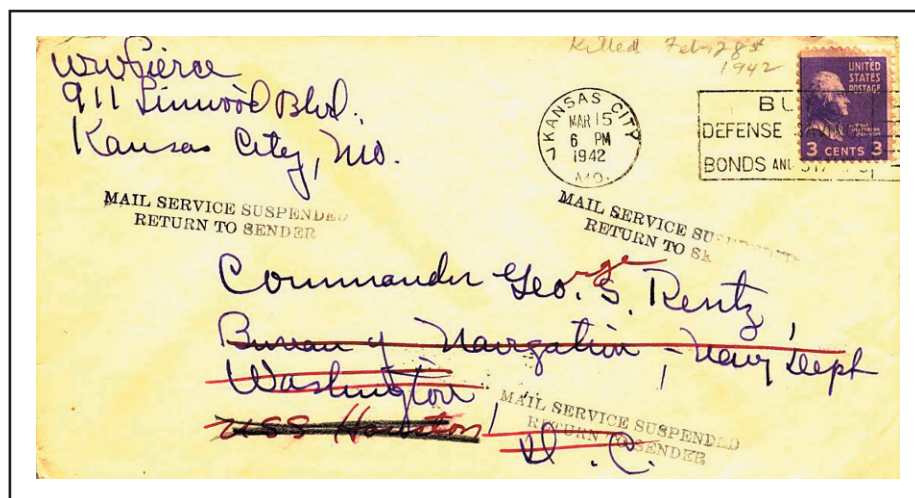 Killed Feb. 28st
1942
WW Pierce
911 Linwood Blvd.
Kansas City, Mo.
UNITED
STATES
POSTAGE
3 CENTS 3
KANSAS CITY
MAR 15
6 PM
1942
MO.
BU
DEFENSE
BONDS AND
MAIL SERVICE SUSPENDED
RETURN TO SENDER
MAIL SERVICE SUSPENDED
RETURN TO SE
Commander George. S. Rentz,
Bureau of Navigation, Navy Dept
Washington,
USS Houston
D. C.
MAIL SERVICE SUSPENDED
RETURN TO SENDER